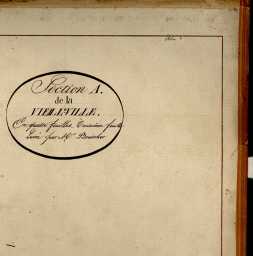 Section A.
de la
VIEILLEVILLE.
En quatre feuilles, Troisième feuille
Levée par Mr